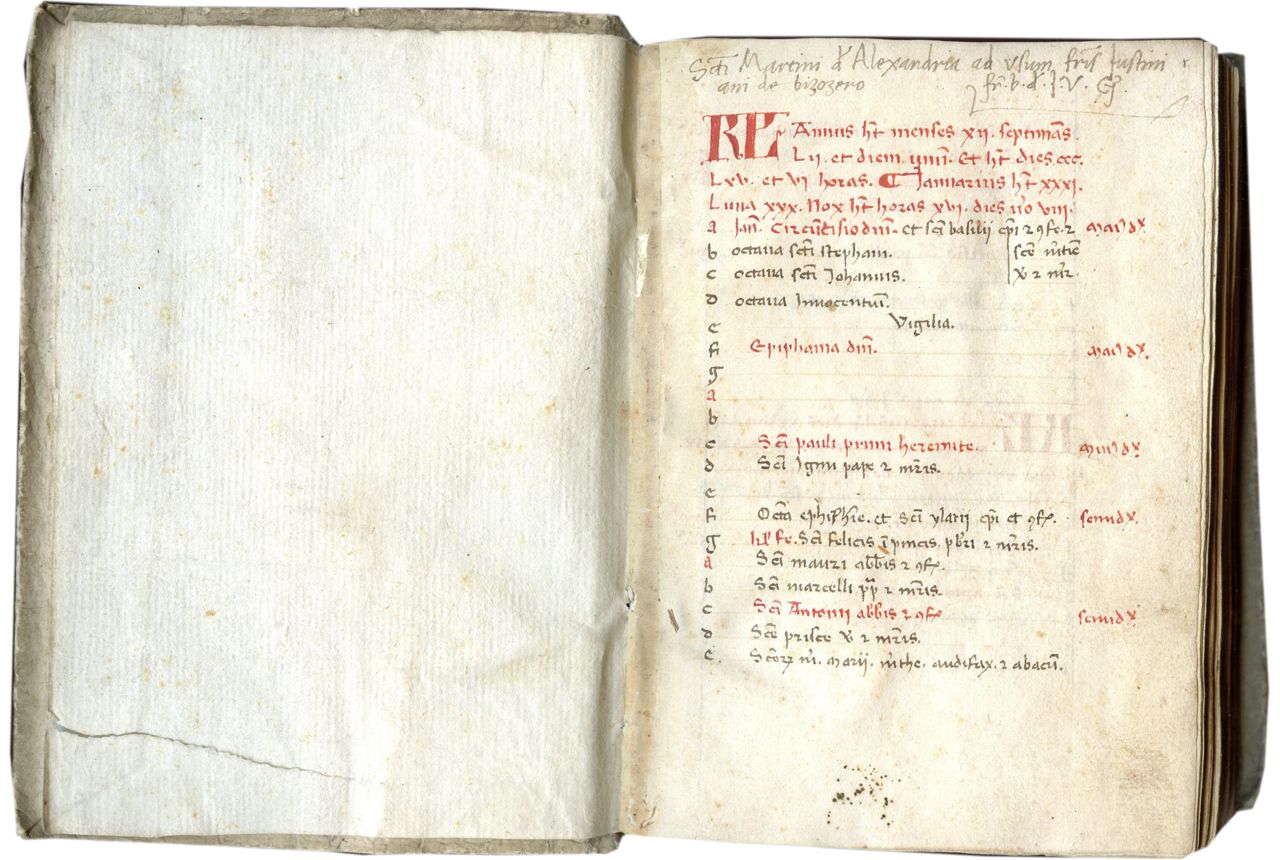 Scti Martini d Alexandria ad vsum fris Iustini
ani de bizozero
fr. b. d. J. V.
KL Annus ht menses xii. septimas
Lii. et diem unu. Et ht dies ccc.
Lxv. et vi horas. Ianuarius ht xxxi.
Luna xxx. Nox ht horas xvi. dies uo viii.
a Ian. Circucisio dni. et sci basilii epi 2 9fe. 2 mai' dx
b octaua scti stephani. sce mtie
c octaua scti Iohannis. v 2 mr.
d octaua Innocentui.
e Vigilia.
f Epiphania dni. mai' dx.
g
a
b
c Sci pauli primi heremite. dx
d Sci Igini pape 2 mris.
e
f Octa ephiphie. et Sci ylarii epi et 9f. semidx.
g fe. Sci felicis i pincis. pbri 2 mris.
a Sci mauri abbis 2 9f.
b Sci marcelli pp 2 mris.
c Sci Antonii abbis 2 9f semidx
d Sce prisce v 2 mris.
e. Scorz m. marii. mthe. audifax. 2 abacu.